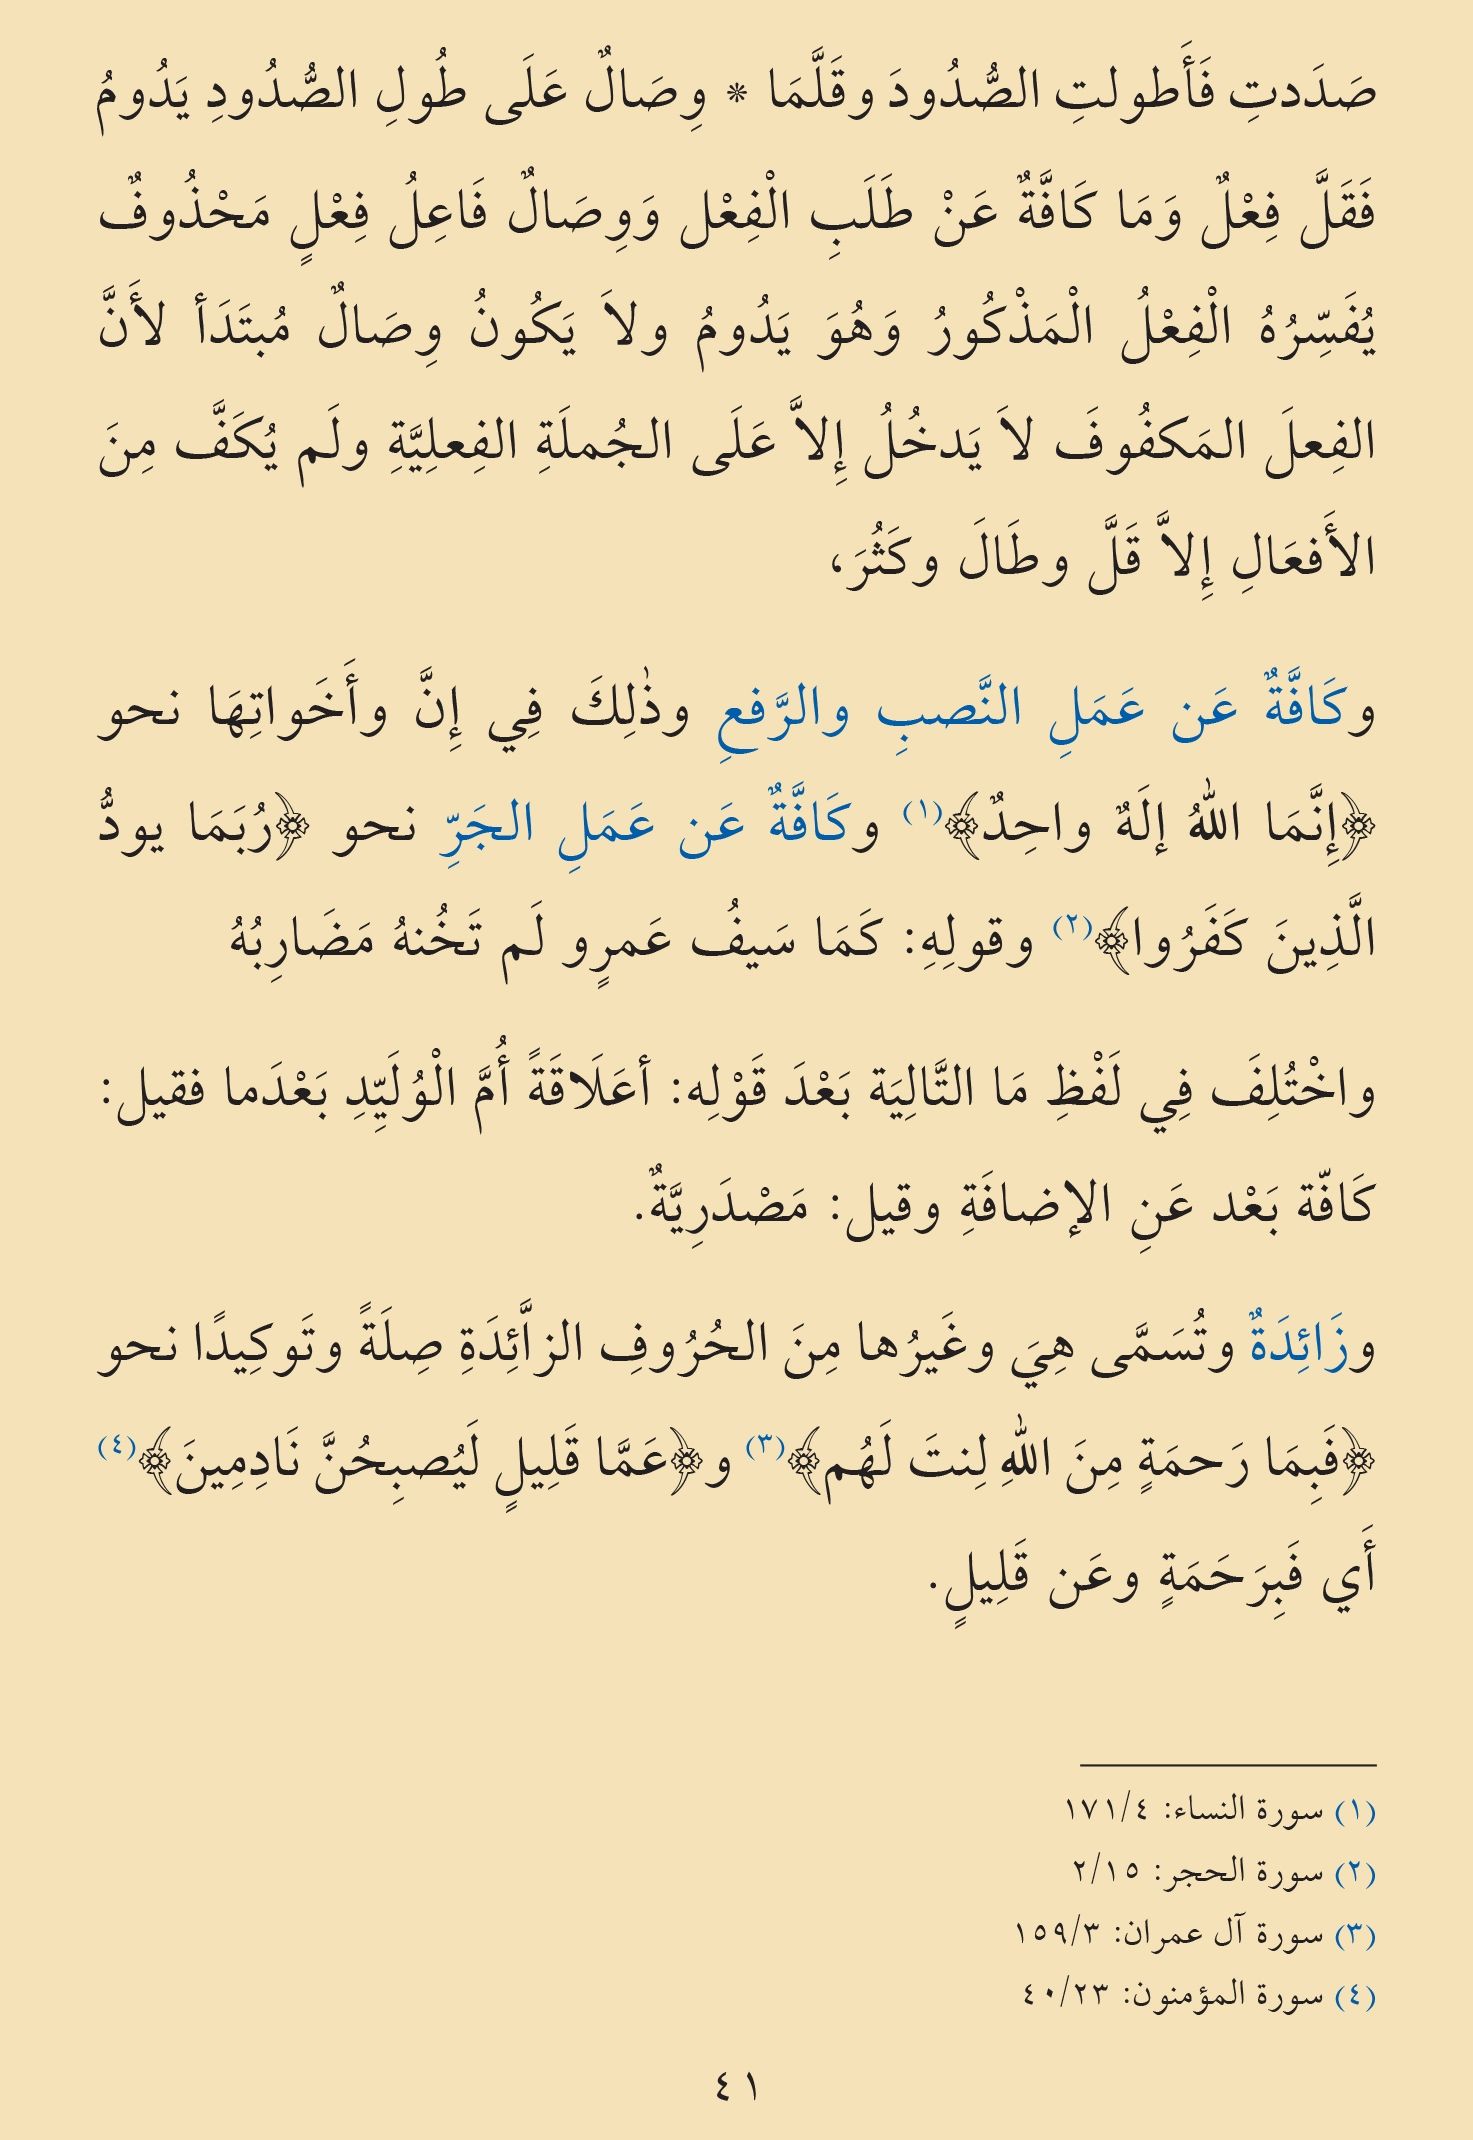 صَدَدتِ فَأَطولتِ الصُّدُودَ وقَلَّمَا * وِصَالٌ عَلَى طُولِ الصُّدُودِ يَدُومُ
فَقَلَّ فِعْلٌ وَمَا كَافَّةٌ عَنْ طَلَبِ الْفِعْل وَوِصَالٌ فَاعِلُ فِعْلٍ مَحْذُوفٌ
يُفَسِّرُهُ الْفِعْلُ الْمَذْكُورُ وَهُوَ يَدُومُ ولاَ يَكُونُ وِصَالٌ مُبتَدَأ لأَنَّ
الفِعلَ المَكفُوفَ لاَ يَدخُلُ إِلاَّ عَلَى الجُملَةِ الفِعلِيَّةِ ولَم يُكَفَّ مِنَ
الأَفعَالِ إِلاَّ قَلَّ وطَالَ وكَثُرَ،
وكَافَّةٌ عَن عَمَلِ النَّصبِ والرَّفعِ وذٰلِكَ فِي إِنَّ وأَخَواتِهَا نحو
﴿إِنَّمَا اللهُ إلَهٌ واحِدٌ﴾(١) وكَافَّةٌ عَن عَمَلِ الجَرِّ نحو ﴿رُبَمَا يودُّ
الَّذِينَ كَفَرُوا﴾(٢) وقولِهِ: كَمَا سَيفُ عَمرٍو لَم تَخُنهُ مَضَارِبُهُ
واخْتُلِفَ فِي لَفْظِ مَا التَّالِيَة بَعْدَ قَوْلِه: أعَلَاقَةً أُمَّ الْوُلَيِّدِ بَعْدَما فقيل:
كَافّة بَعْد عَنِ الإضافَةِ وقيل: مَصْدَرِيَّةٌ.
وزَائِدَةٌ وتُسَمَّى هِيَ وغَيرُها مِنَ الحُرُوفِ الزاَّئِدَةِ صِلَةً وتَوكِيدًا نحو
﴿فَبِمَا رَحمَةٍ مِنَ اللهِ لِنتَ لَهُم﴾(٣) و﴿عَمَّا قَلِيلٍ لَيُصبِحُنَّ نَادِمِينَ﴾(٤)
أَي فَبِرَحَمَةٍ وعَن قَلِيلٍ.
(١) سورة النساء: ١٧١/٤
(٢) سورة الحجر: ٢/١٥
(٣) سورة آل عمران: ١٥٩/٣
(٤) سورة المؤمنون: ٤٠/٢٣
٤١